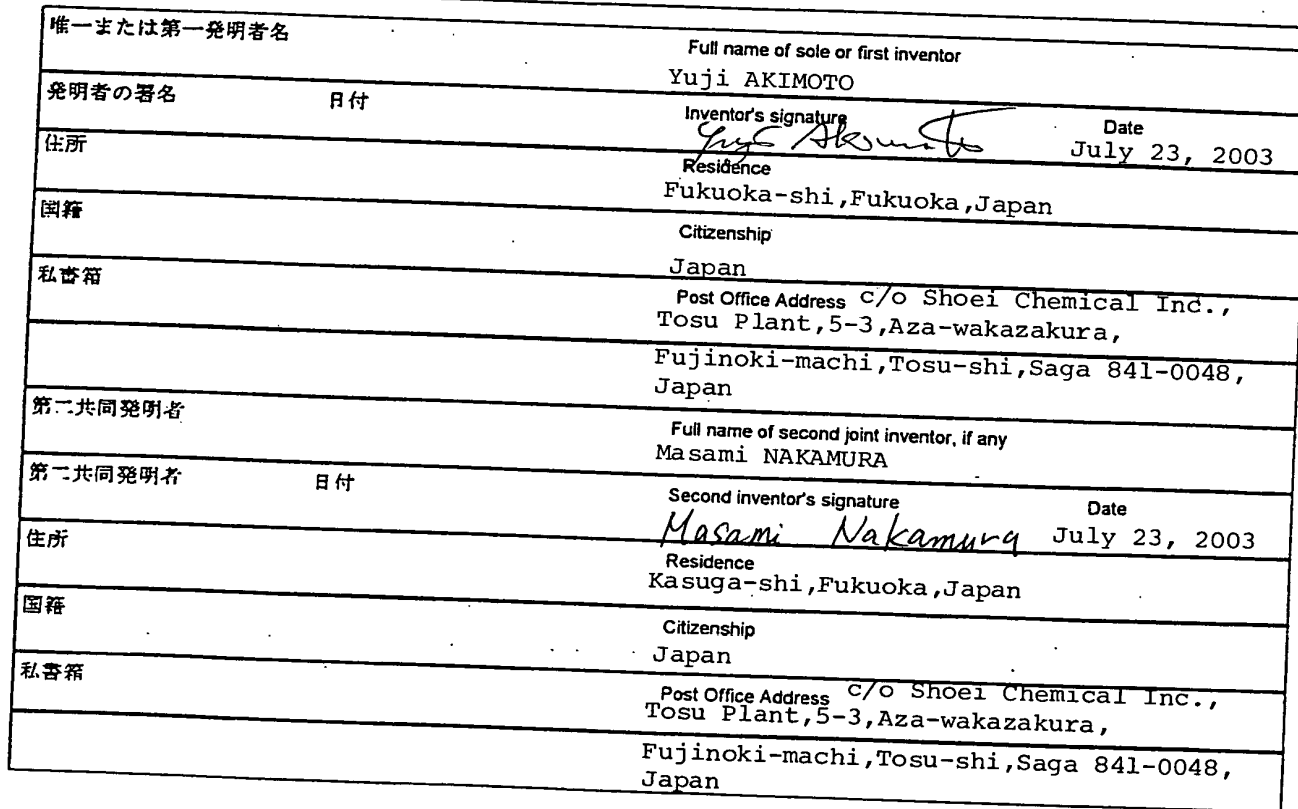 唯一または第一発明者名
Full name of sole or first inventor
Yuji AKIMOTO
発明者の署名 日付
Inventor's signature Date
July 23, 2003
住所
Residence
Fukuoka-shi,Fukuoka,Japan
国籍
Citizenship
Japan
私書箱
Post Office Address c/o Shoei Chemical Inc.,
Tosu Plant,5-3,Aza-wakazakura,
Fujinoki-machi,Tosu-shi,Saga 841-0048,
Japan
第二共同発明者
Full name of second joint inventor, if any
Masami NAKAMURA
第二共同発明者 日付
Second inventor's signature Date
Masami Nakamura July 23, 2003
住所
Residence
Kasuga-shi,Fukuoka,Japan
国籍
Citizenship
Japan
私書箱
Post Office Address c/o Shoei Chemical Inc.,
Tosu Plant,5-3,Aza-wakazakura,
Fujinoki-machi,Tosu-shi,Saga 841-0048,
Japan